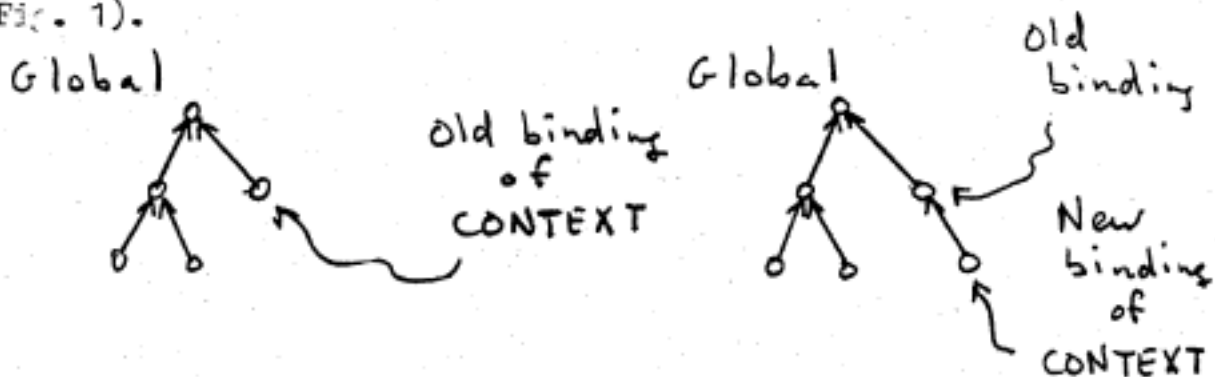 Fig. 1).
Global
Old binding
of
CONTEXT
Global
Old
binding
New
binding
of
CONTEXT